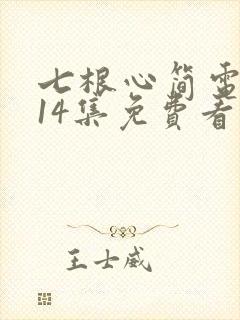 七根心简电
14集免费看
王士威